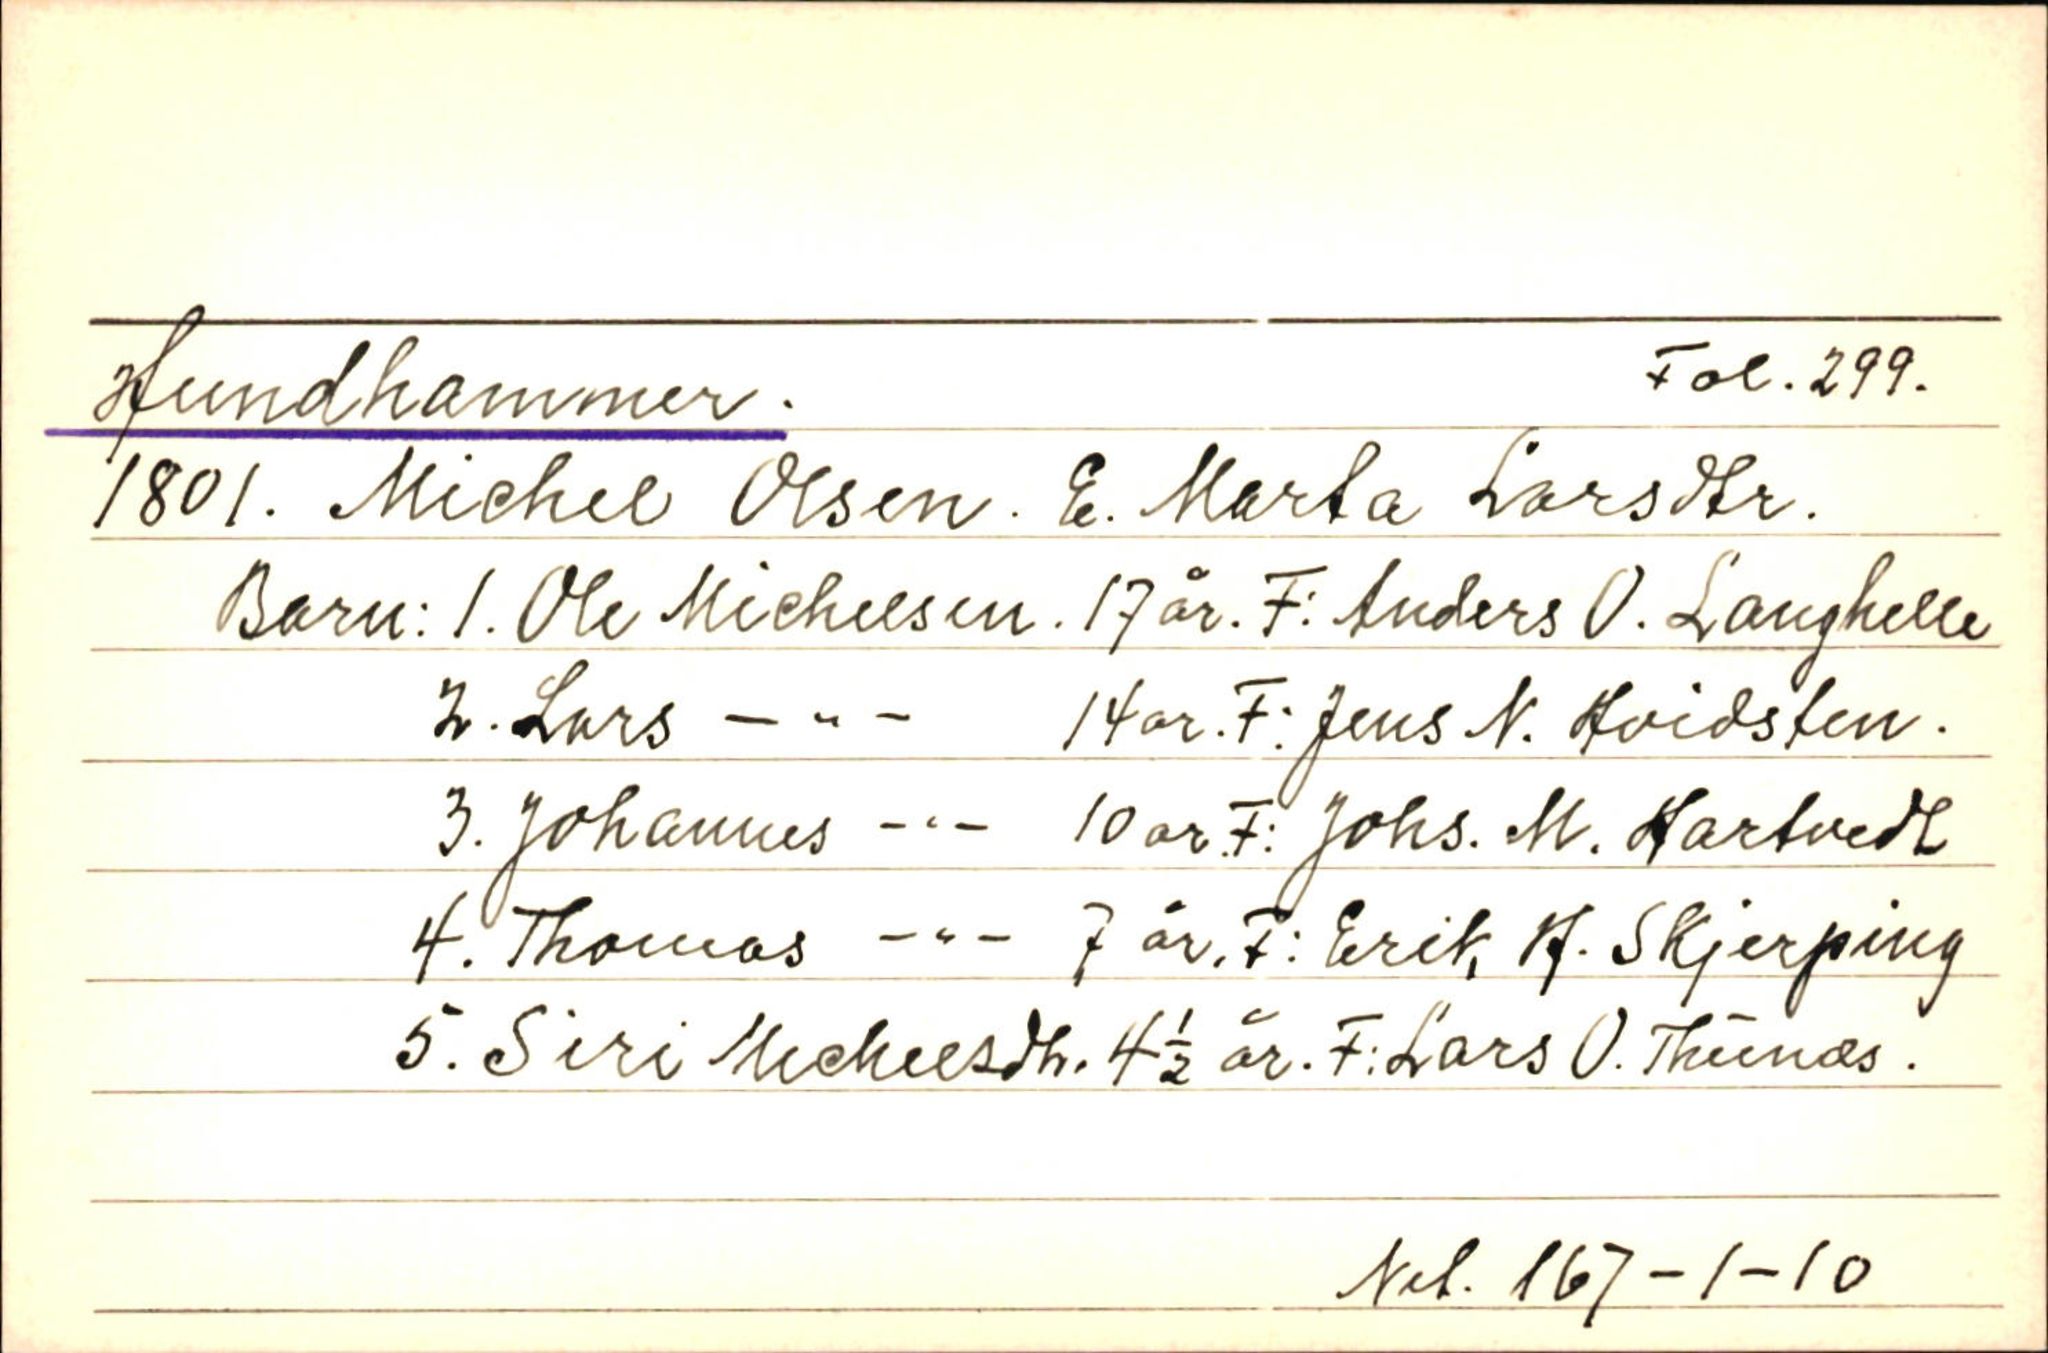 Hundhammer. Fol. 299.
1801. Michel Olsen. E. Marta Larsdtr.
Barn: 1. Ole Michelsen. 17 år. F: Anders O. Langhelle
2. Lars — " — 14 ar. F: Jens N. Hvidsten.
3. Johannes — " — 10 ar. F: Johs. M. Hartvedt
4. Thomas — " — 7 år. F: Erik H. Skjerping
5. Siri Michelsdtr. 4½ år. F: Lars O. Thunæs.
Net. 167-1-10